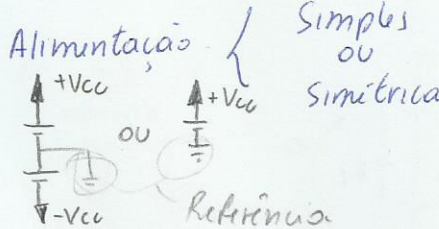 Alimentação { Simples
ou
Simétrica
+Vcc
ou
+Vcc
-Vcc
Referência